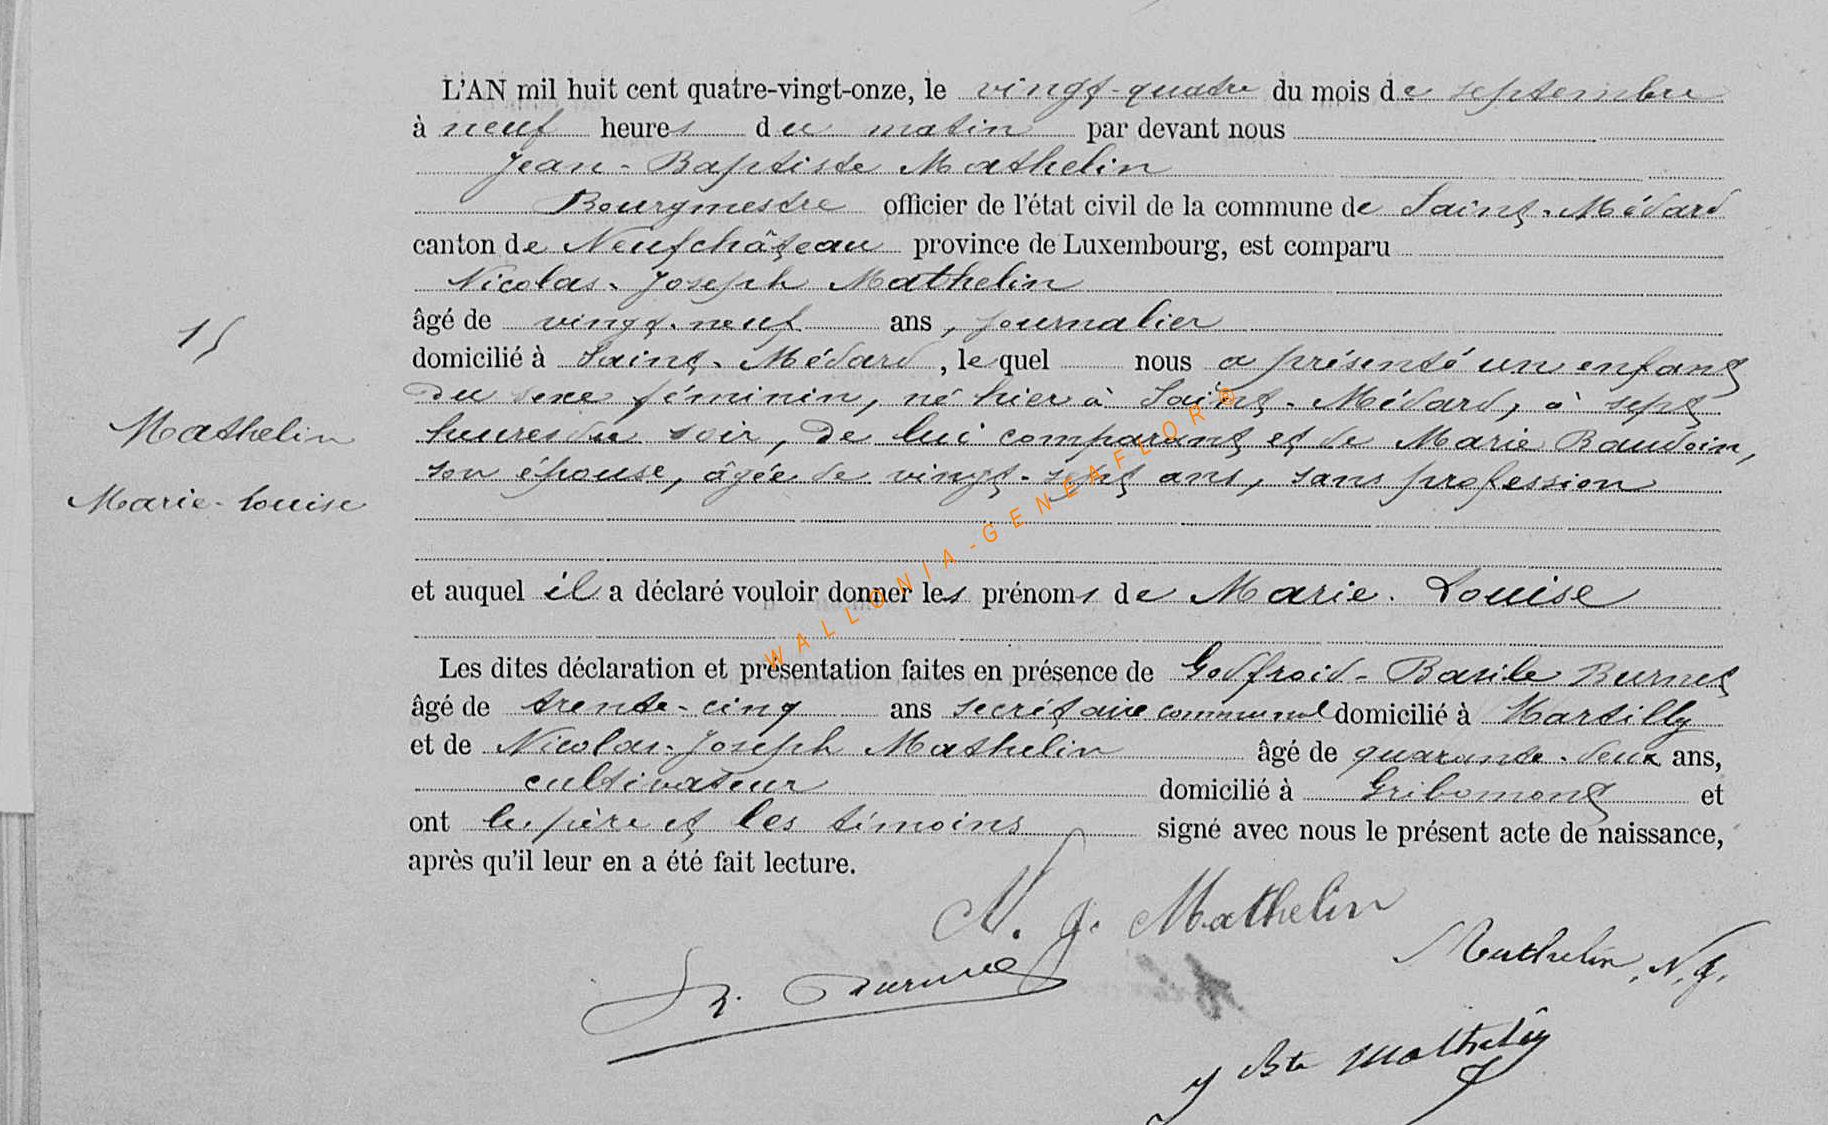 L'AN mil huit cent quatre-vingt-onze, le vingt-quatre du mois de septembre
à neuf heures du matin par devant nous
Jean-Baptiste Mathelin
Bourgmestre officier de l'état civil de la commune de Saint-Médard
canton de Neufchâteau province de Luxembourg, est comparu
Nicolas-Joseph Mathelin
âgé de vingt-neuf ans, journalier
domicilié à Saint-Médard, le quel nous a présenté un enfant
du sexe féminin, né hier à Saint-Médard, à sept
heures du soir, de lui comparant et de Marie Baudoin,
son épouse, âgée de vingt-sept ans, sans profession
15
Mathelin
Marie-Louise
et auquel il a déclaré vouloir donner les prénoms de Marie-Louise
Les dites déclaration et présentation faites en présence de Godfroid-Basile Burnet
âgé de trente-cinq ans secrétaire communal domicilié à Martilly
et de Nicolas-Joseph Mathelin âgé de quarante-deux ans,
cultivateur domicilié à Gribomont et
ont le père et les témoins signé avec nous le présent acte de naissance,
après qu'il leur en a été fait lecture.
N. J. Mathelin
Mathelin, N. J.
Burnet
J Bte Mathelin
WALLONIA-GENEAFLOR®